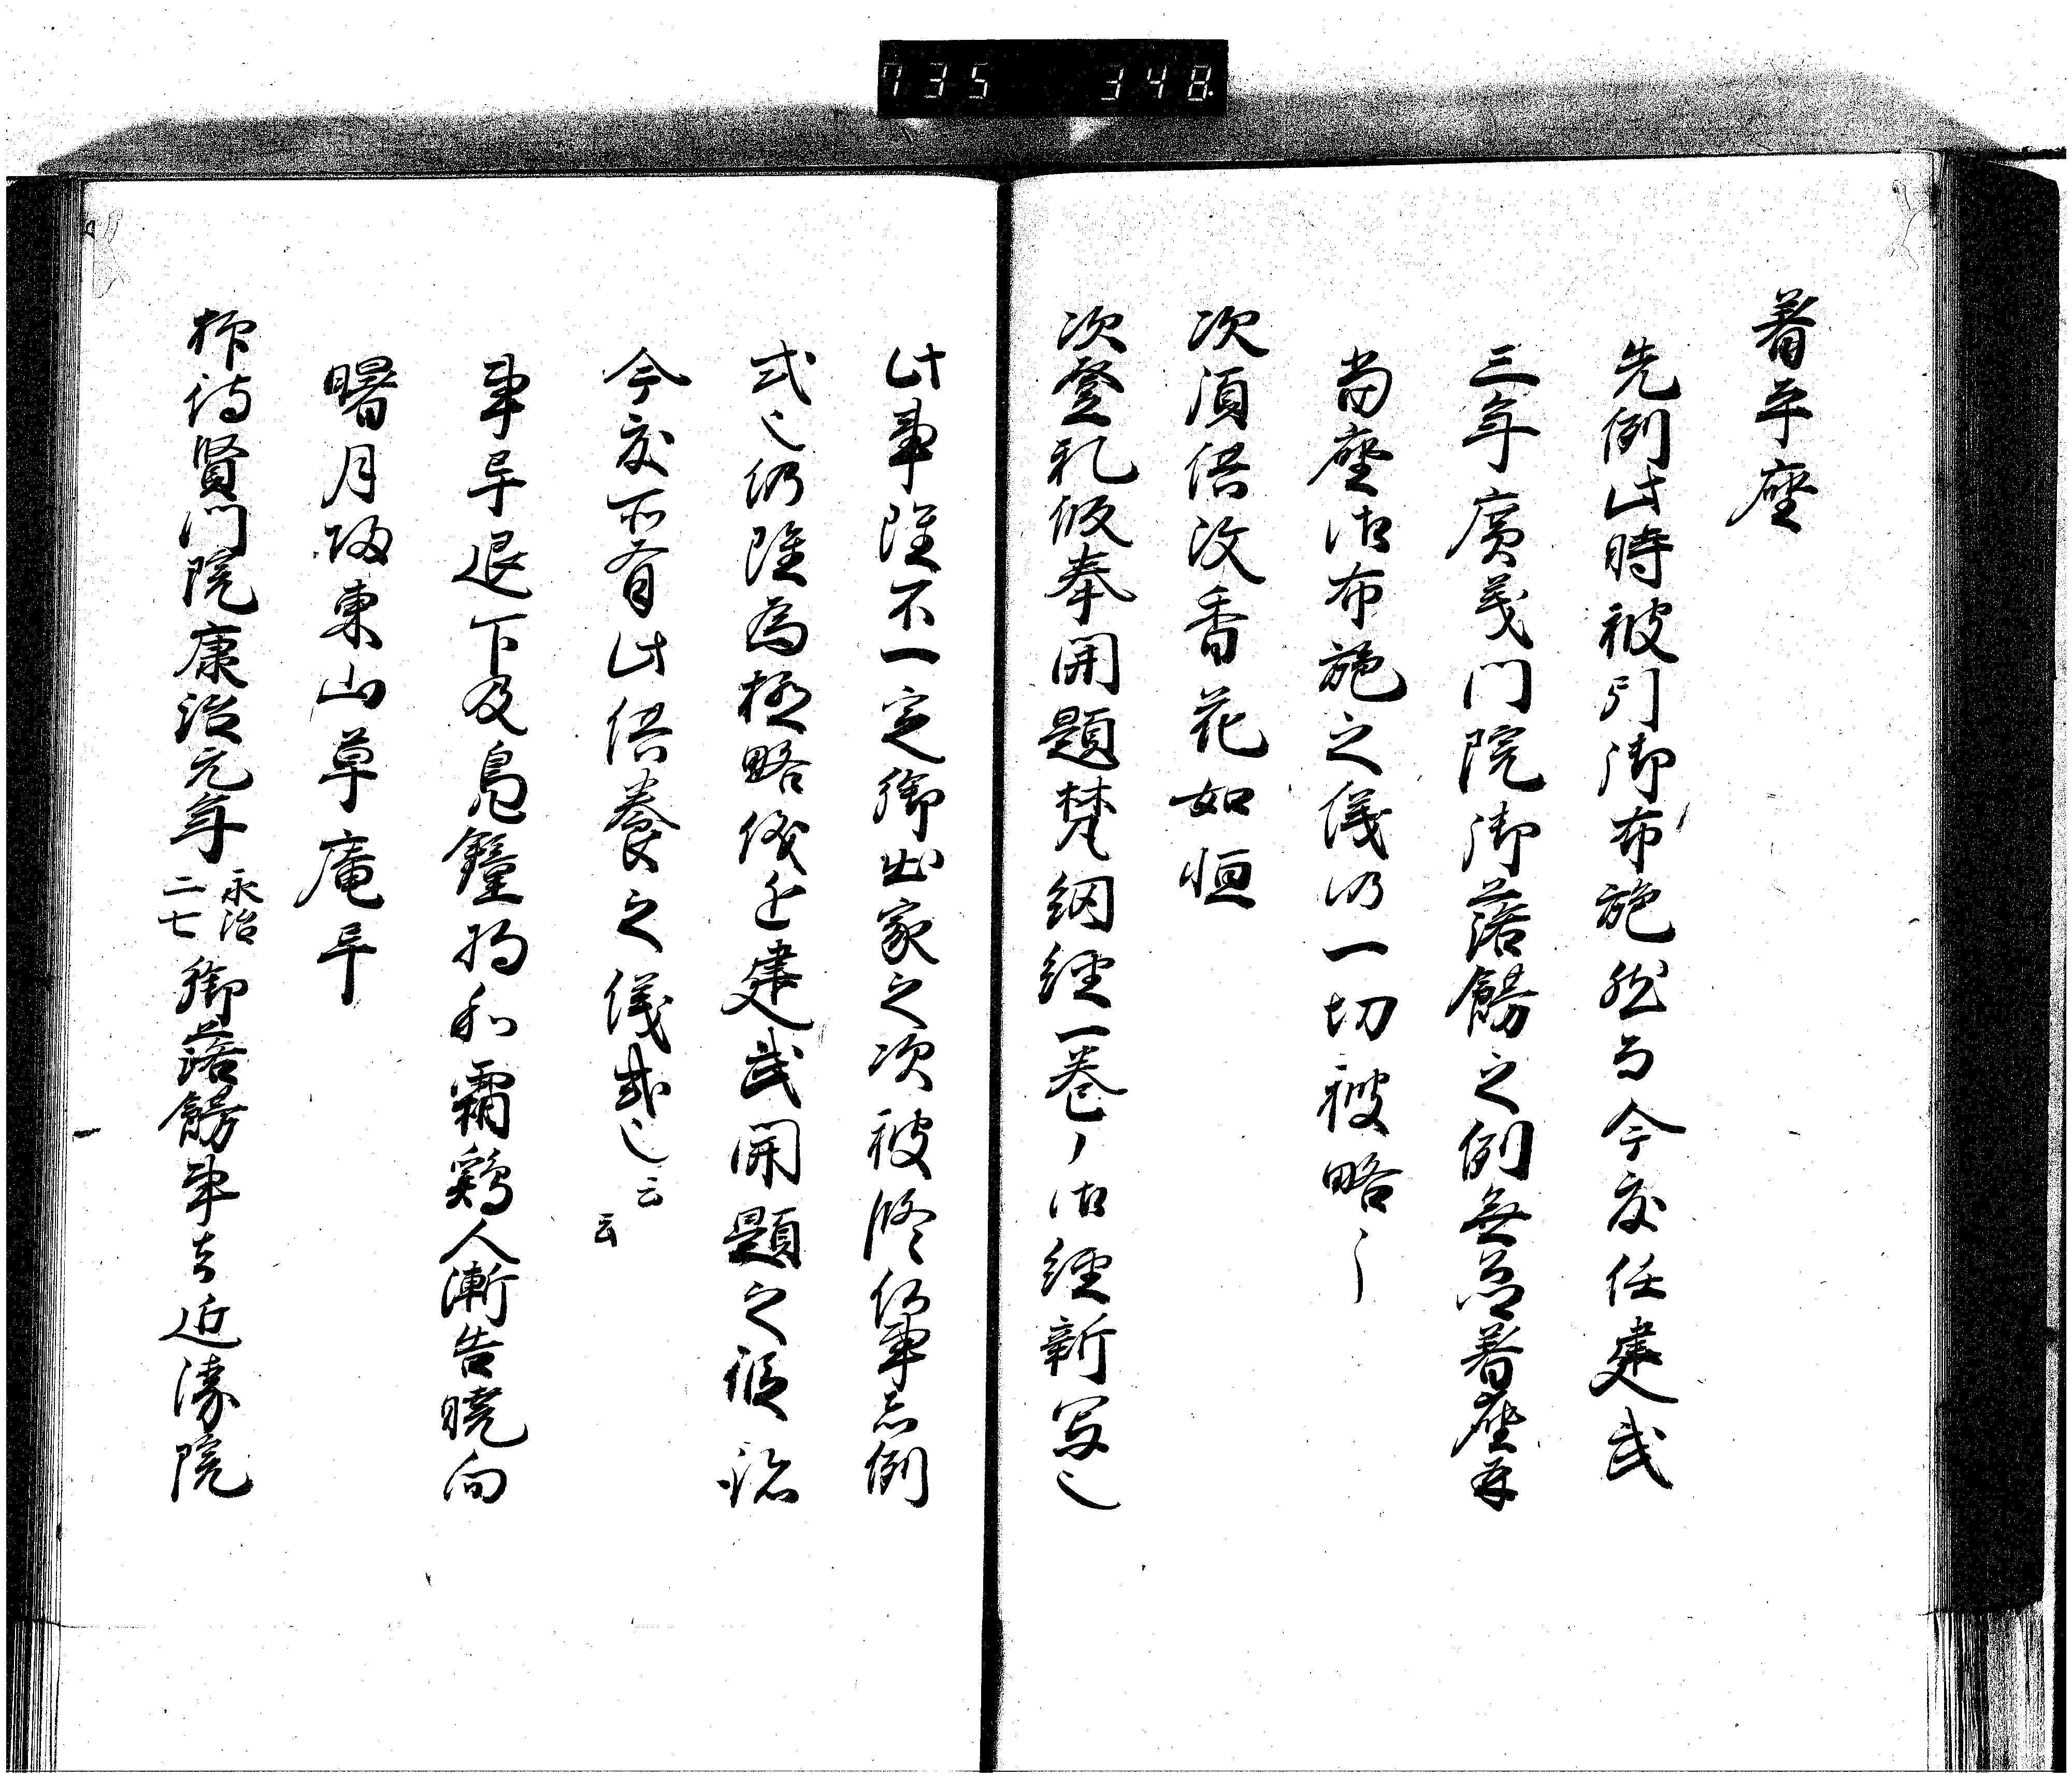 735 348
著平座
先例此時被引御布施然而今度任建武
三年廣義門院御落餝之例無着座
当座御布施之儀仍一切被略之
次須供汶香花如恒
次登礼仮奉開題梵網経一巻御経新写也
此事雖不一定御出家之次被修仏事之例
式也仍雖為極略儀追建武開題之
今度所有此供養之儀式也云云
事畢退下及鳧鐘初和霜鶏人漸告暁向
曙月帰東山草庵畢
抑待賢門院康治元年
永治
二七
御落餝事去近濠院